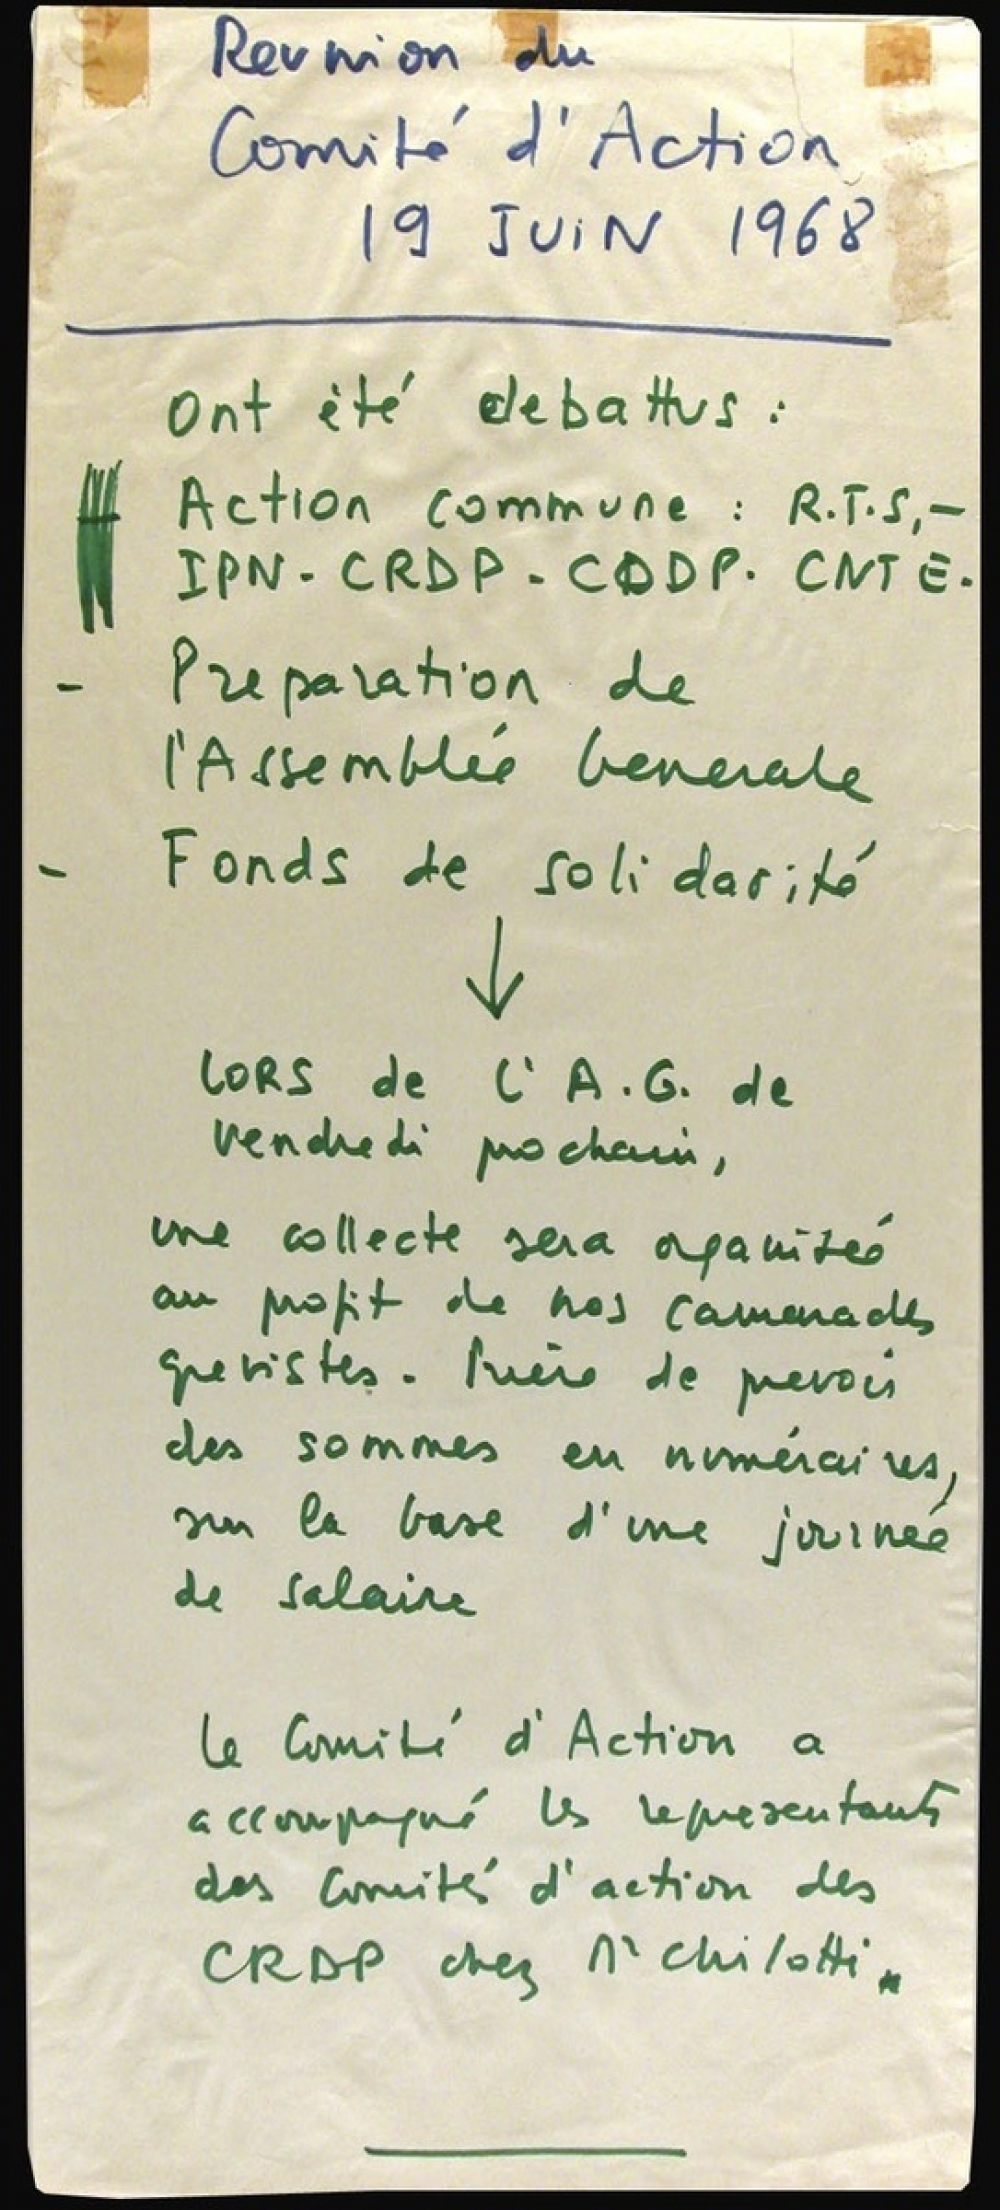 Reunion du
Comité d'Action
19 JUIN 1968
Ont été debattus :
Action commune : R.T.S,-
IPN - CRDP - CDDP. CNTE.
- Preparation de
l'Assemblée Generale
- Fonds de solidarité
↓
LORS de l'A.G. de
vendredi prochain,
une collecte sera organisée
au profit de nos camarades
grevistes. Prière de prevoir
des sommes en numéraires,
sur la base d'une journée
de salaire
Le Comité d'Action a
accompagné les representants
des Comités d'action des
CRDP chez Mr Chilotti.